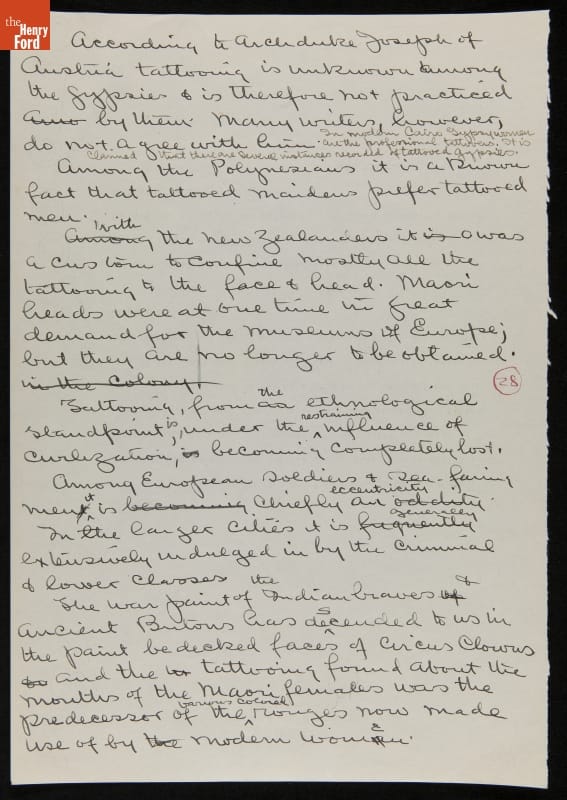 the Henry Ford
According to Archduke Joseph of
Austria tattooing is unknown among
the gypsies & is therefore not practiced
by them. Many writers, however,
do not agree with him. In modern Cairo Gypsy women
are the professional tattooers. It is
claimed that there are several instances recorded of tattooed gypsies.
Among the Polynesians it is a known
fact that tattooed maidens prefer tattooed
men.
with
Among the new Zealanders it is a was
a custom to confine mostly all the
tattooing to the face & head. Maori
heads were at one time in great
demand for the museums of Europe;
but they are no longer to be obtained.
in the colony.
28
Tattooing, from an the ethnological
standpoint is, under the restraining influence of
civilization, is becoming completely lost.
Among European soldiers & sea-faring
men it is becoming chiefly an oddity eccentricity.
In the larger cities it is frequently generally
extensively indulged in by the criminal
& lower classes
The war paint of the Indian braves of &
ancient Britons has descended to us in
the paint bedecked faces of circus clowns
and the tattooing found about the
mouths of the Maori females was the
predecessor of the various colored rouges now made
use of by the modern women.